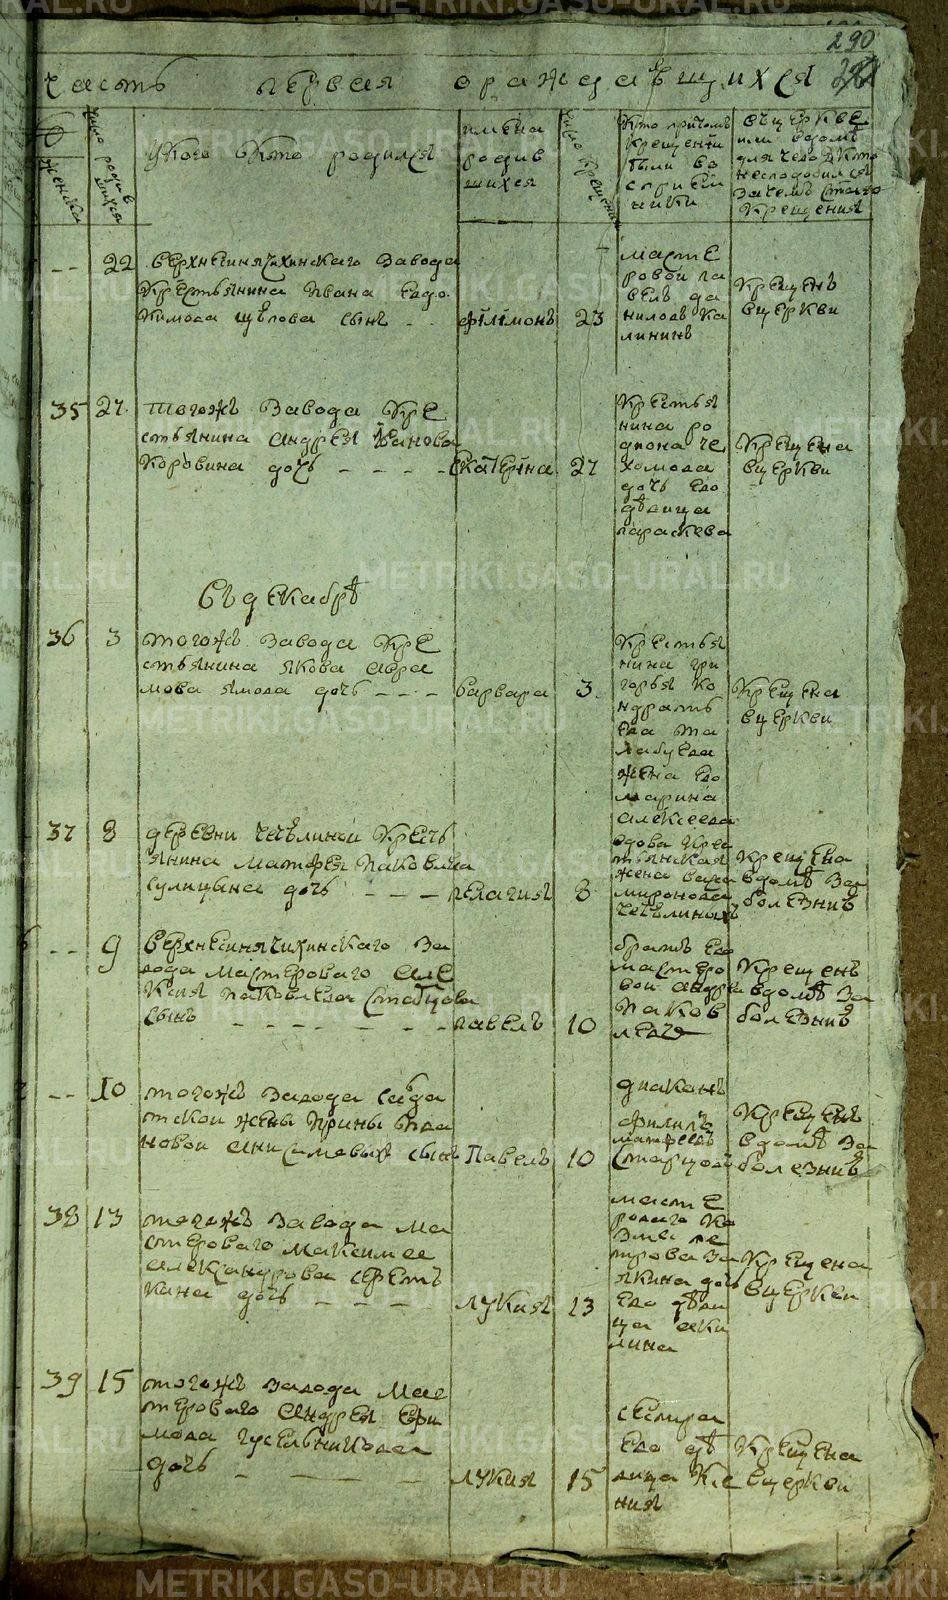 METRIKI.GASO-URAL.RU
290
часть первая ораждавшихся
женска
число родившихся
укого Ікто родился
имена
родив
шихся
число крещения
Кто причомъ
крещении
были во
спри ем
ники
вцеркве
или вдоме
для чего Ікто
несподобился
зачемъ Стаго
Крещения
-- 22 верхнесинячихинскаго завода
Крестьянина Ивана Евдо
кимова сынъ - -
филимонъ 23
масте
ровой па
велъ да
ниловъ ка
лининъ
Крещенъ
вцеркви
35 27 тогожъ завода кре
стьянина андрея Іванова
коровина дочь - - - -
екатерина 27
крестья
нина ро
диона
дочь ево
девица
параскева
Крещена
вцеркви
Въ декабрѣ
36 3 тогожъ завода кре
стьянина якова авра
мова дочь - - -
варвара 3
крестья
нина гри
горья ко
ндрать
ева
жена ево
марина
алексеева
Крещена
вцеркви
37 8 деревни кресть
янина матфея яковлева
сулицына дочь - - -
пелагия 8
вдова кре
стьянская
жена
миронова
крещена
вдоме за
болезнию
-- 9 верхнесинячихинскаго за
вода мастероваго але
ксея яковлева
сынъ - - - - -
павелъ 10
братъ ево
мастеро
вой андрей
яков
левъ
крещенъ
вдоме за
болезнию
-- 10 тогожъ завода салда
тской жены Ирины Ива
новой анисимовыхъ сынъ
Павелъ 10
диаконъ
филипъ
матфеевъ
Старцовъ
крещенъ
вдоме за
болезнию
38 13 тогожъ завода ма
стероваго максима
александрова
дочь - - -
лукия 13
масте
роваго ко
змы пе
трова за
якина дочь
ево деви
ца аки
лина
Крещена
вцеркви
39 15 тогожъ завода мас
тероваго андрея ефи
мова гусельникова
дочь - - -
лукия 15
сестра
ево де
вица ксе
ния
Крещена
вцеркви
METRIKI.GASO-URAL.RU